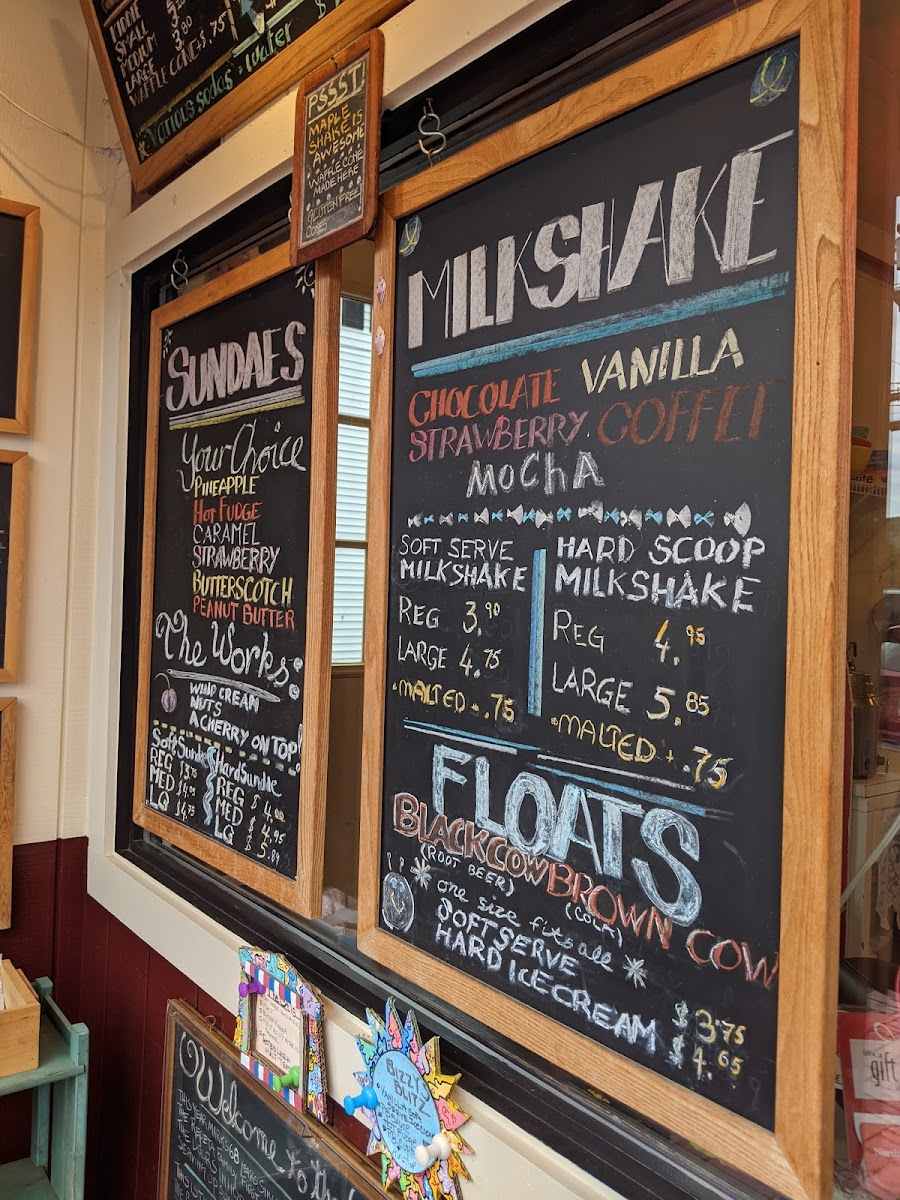 SMALL
MEDIUM
LARGE
WAFFLE CONE $.75
Various sodas - water
PSSST!
MAPLE
SHAKE IS
AWESOME
WAFFLE CONE
MADE HERE
GLUTEN FREE
CONES
SUNDAES
Your Choice
PINEAPPLE
HOT FUDGE
CARAMEL
STRAWBERRY
BUTTERSCOTCH
PEANUT BUTTER
The Works
WHIP CREAM
NUTS
A CHERRY ON TOP!
Soft Sundae
REG $3.75
MED $4.95
LG $4.75
Hard Sundae
REG $4.00
MED $4.95
LG $5.89
MILKSHAKE
CHOCOLATE VANILLA
STRAWBERRY COFFEE
MOCHA
SOFT SERVE
MILKSHAKE
REG 3.90
LARGE 4.75
•MALTED + .75
HARD SCOOP
MILKSHAKE
REG 4.95
LARGE 5.85
•MALTED + .75
FLOATS
BLACK COW BROWN COW
(ROOT BEER) (COLA)
one size fits all
SOFT SERVE $3.75
HARD ICE CREAM $4.65
BIZZY
BLITZ
Welcome to the
gift
North